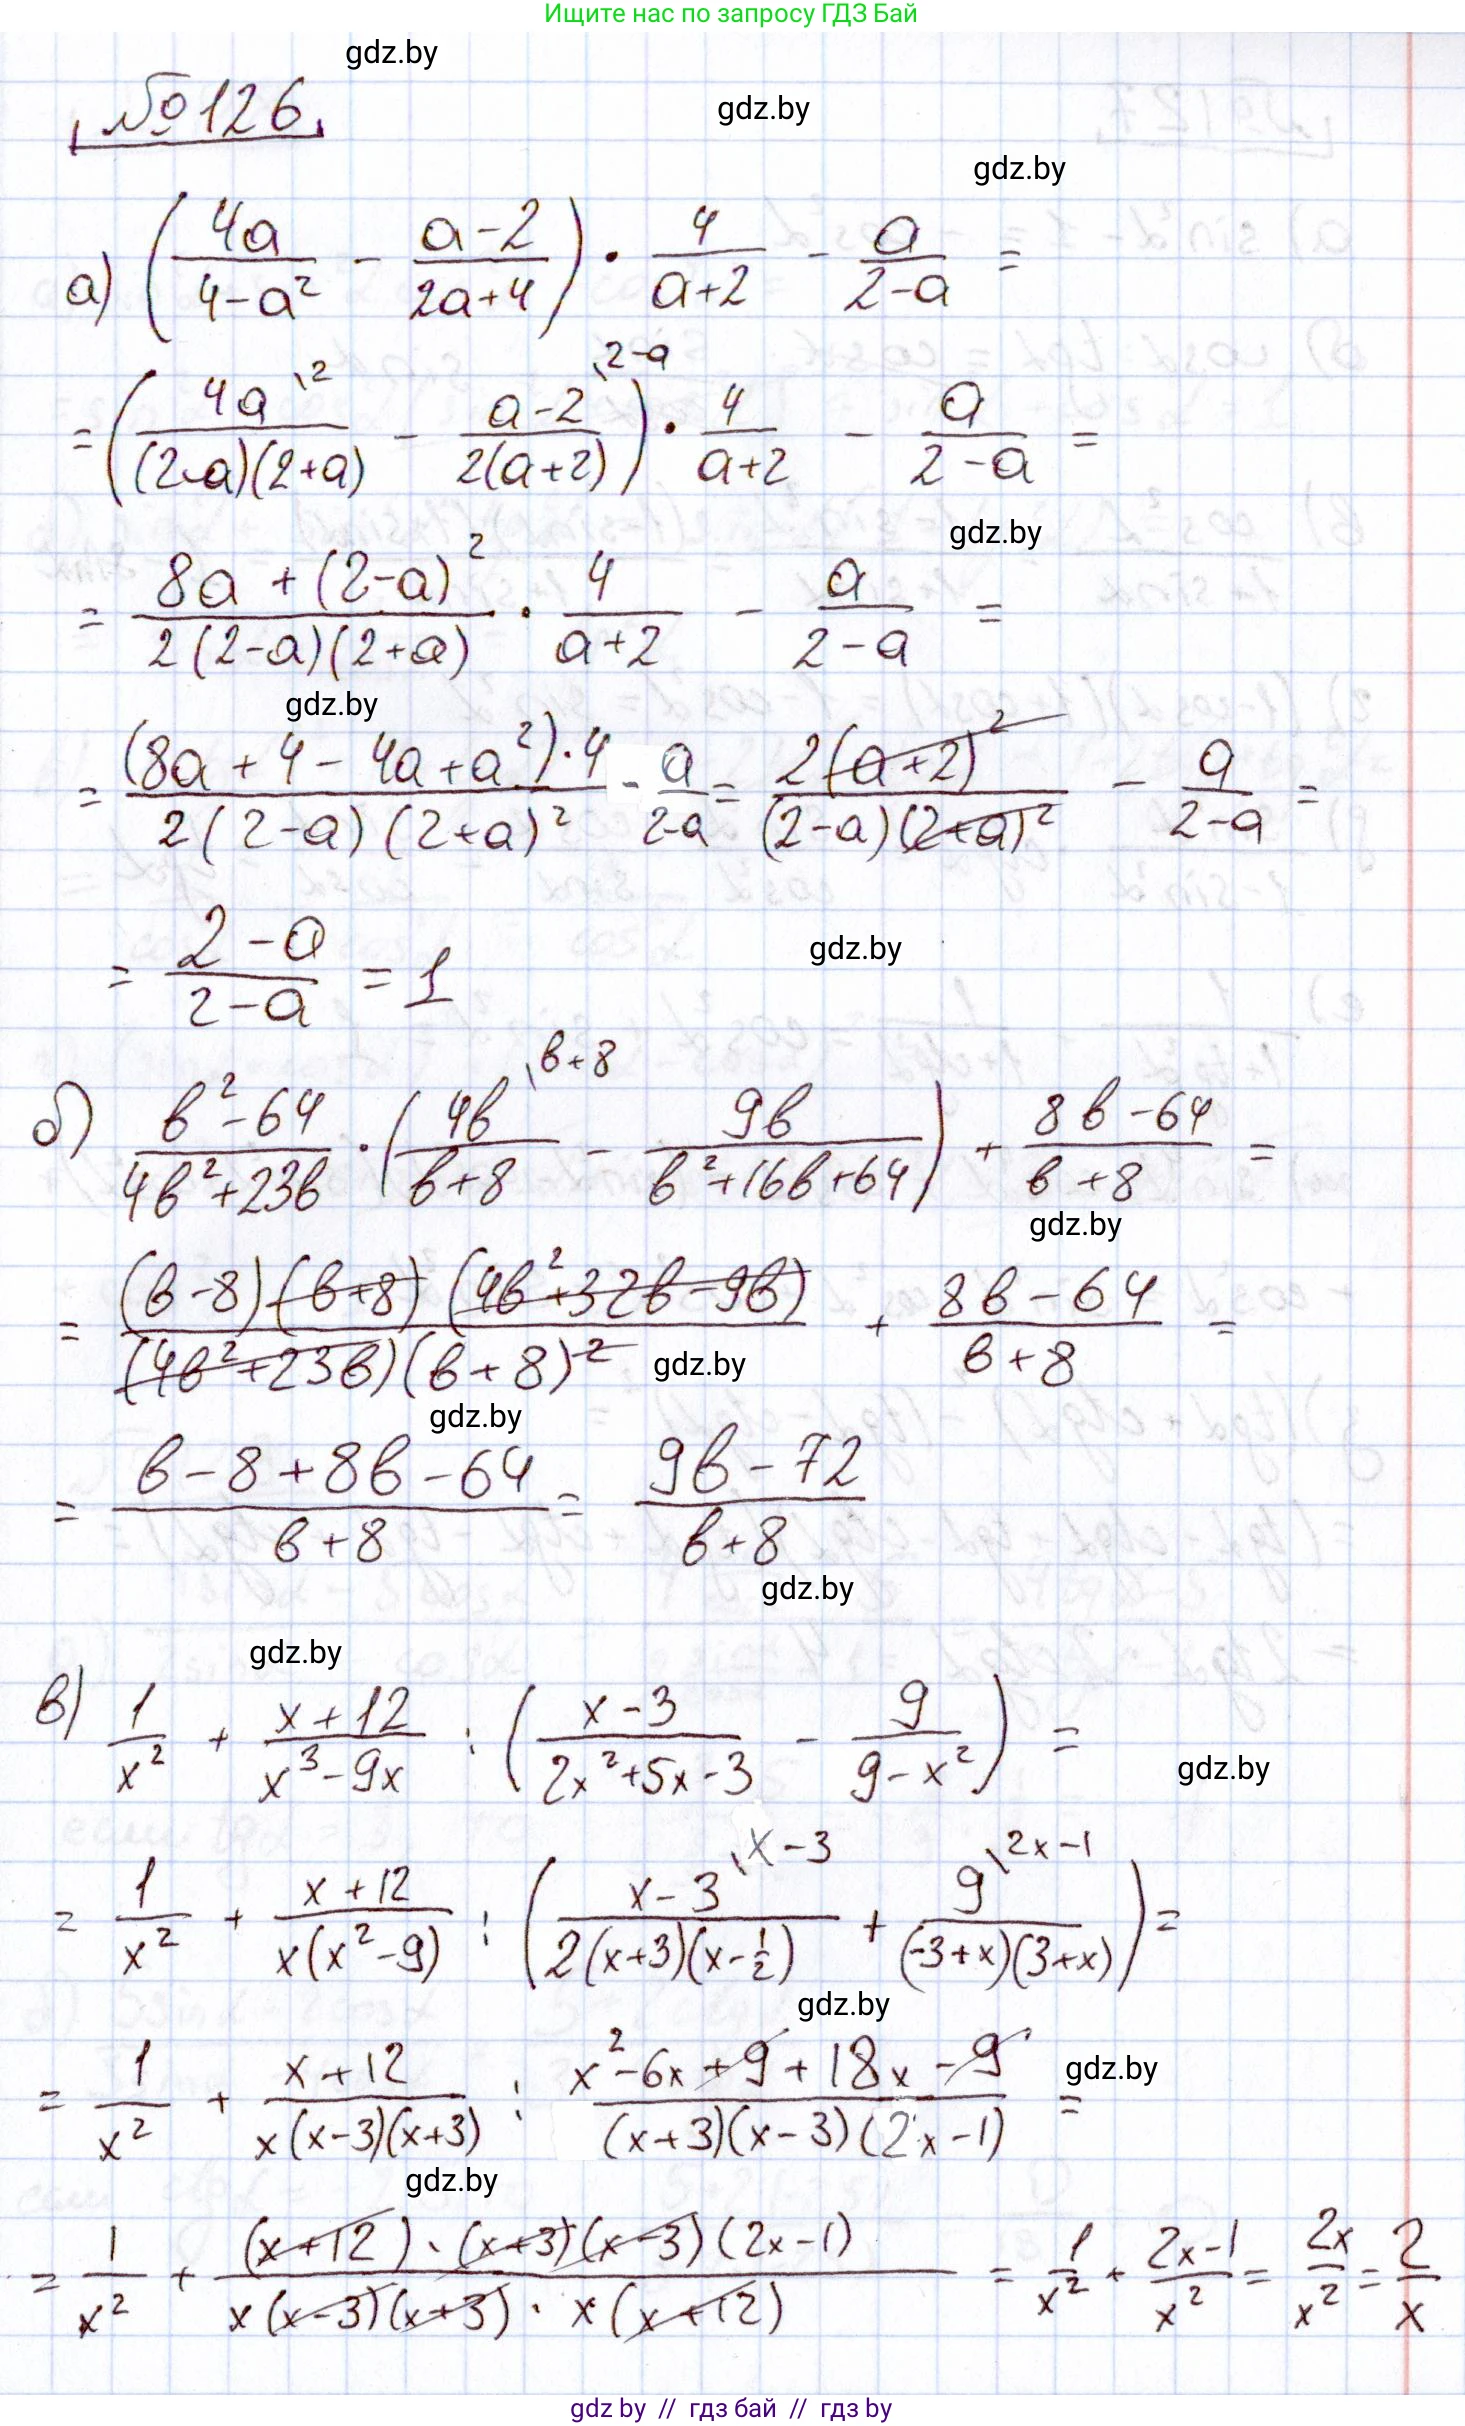 Ищите нас по запросу ГДЗ Бай
gdz.by
№126
gdz.by
gdz.by
а) (4a/(4-a²) - (a-2)/(2a+4)) · 4/(a+2) - a/(2-a) =
= (4a\2/((2-a)(2+a)) - (a-2)\2-a/(2(a+2))) · 4/(a+2) - a/(2-a) =
gdz.by
= (8a+(2-a)²)/(2(2-a)(2+a)) · 4/(a+2) - a/(2-a) =
gdz.by
= ((8a+4-4a+a²)·4)/(2(2-a)(2+a)²) - a/(2-a) = 2(a+2)²/((2-a)(2+a)²) - a/(2-a) =
= (2-a)/(2-a) = 1
gdz.by
б) (b²-64)/(4b²+23b) · (4b\b+8/(b+8) - 9b/(b²+16b+64)) + (8b-64)/(b+8) =
gdz.by
= ((b-8)(b+8)(4b²+32b-9b))/((4b²+23b)(b+8)²) + (8b-64)/(b+8) =
gdz.by
gdz.by
= (b-8+8b-64)/(b+8) = (9b-72)/(b+8)
gdz.by
gdz.by
в) 1/x² + (x+12)/(x³-9x) : ((x-3)/(2x²+5x-3) - 9/(9-x²)) =
gdz.by
= 1/x² + (x+12)/(x(x²-9)) : ((x-3)\x-3/(2(x+3)(x-1/2)) + 9\2x-1/((-3+x)(3+x))) =
gdz.by
= 1/x² + (x+12)/(x(x-3)(x+3)) : (x²-6x+9+18x-9)/((x+3)(x-3)(2x-1)) =
gdz.by
gdz.by
= 1/x² + ((x+12)·(x+3)(x-3)(2x-1))/(x(x-3)(x+3)·x(x+12)) = 1/x² + (2x-1)/x² = 2x/x² = 2/x
gdz by // гдз бай // гдз by